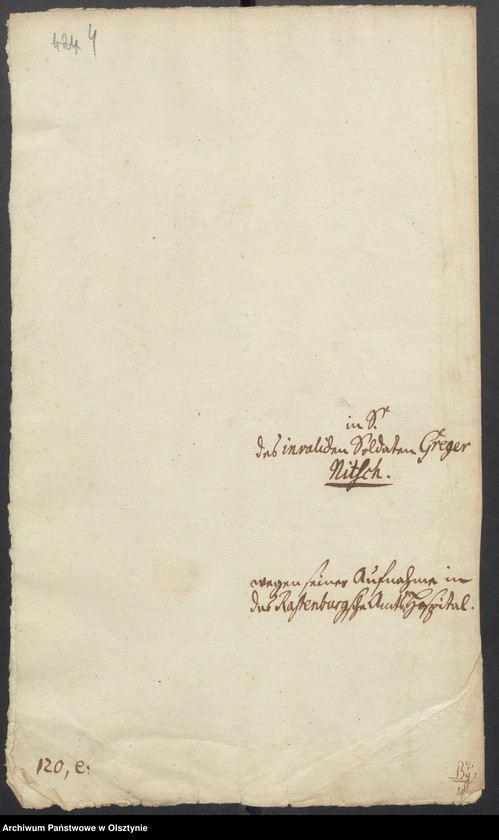 424 4
in S.
des invaliden Soldaten Greger
Nitsch.
wegen seiner Aufnahme in
das Rastenburgsche Amts Hospital.
120, e.
Archiwum Państwowe w Olsztynie